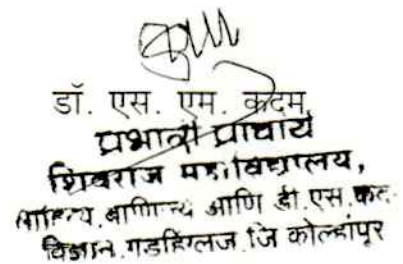 डॉ. एस. एम. कदम
प्रभारी प्राचार्य
शिवराज महाविद्यालय,
वाणिज्य आणि डी.एस.कदम
विज्ञान. गडहिंग्लज जि कोल्हापूर